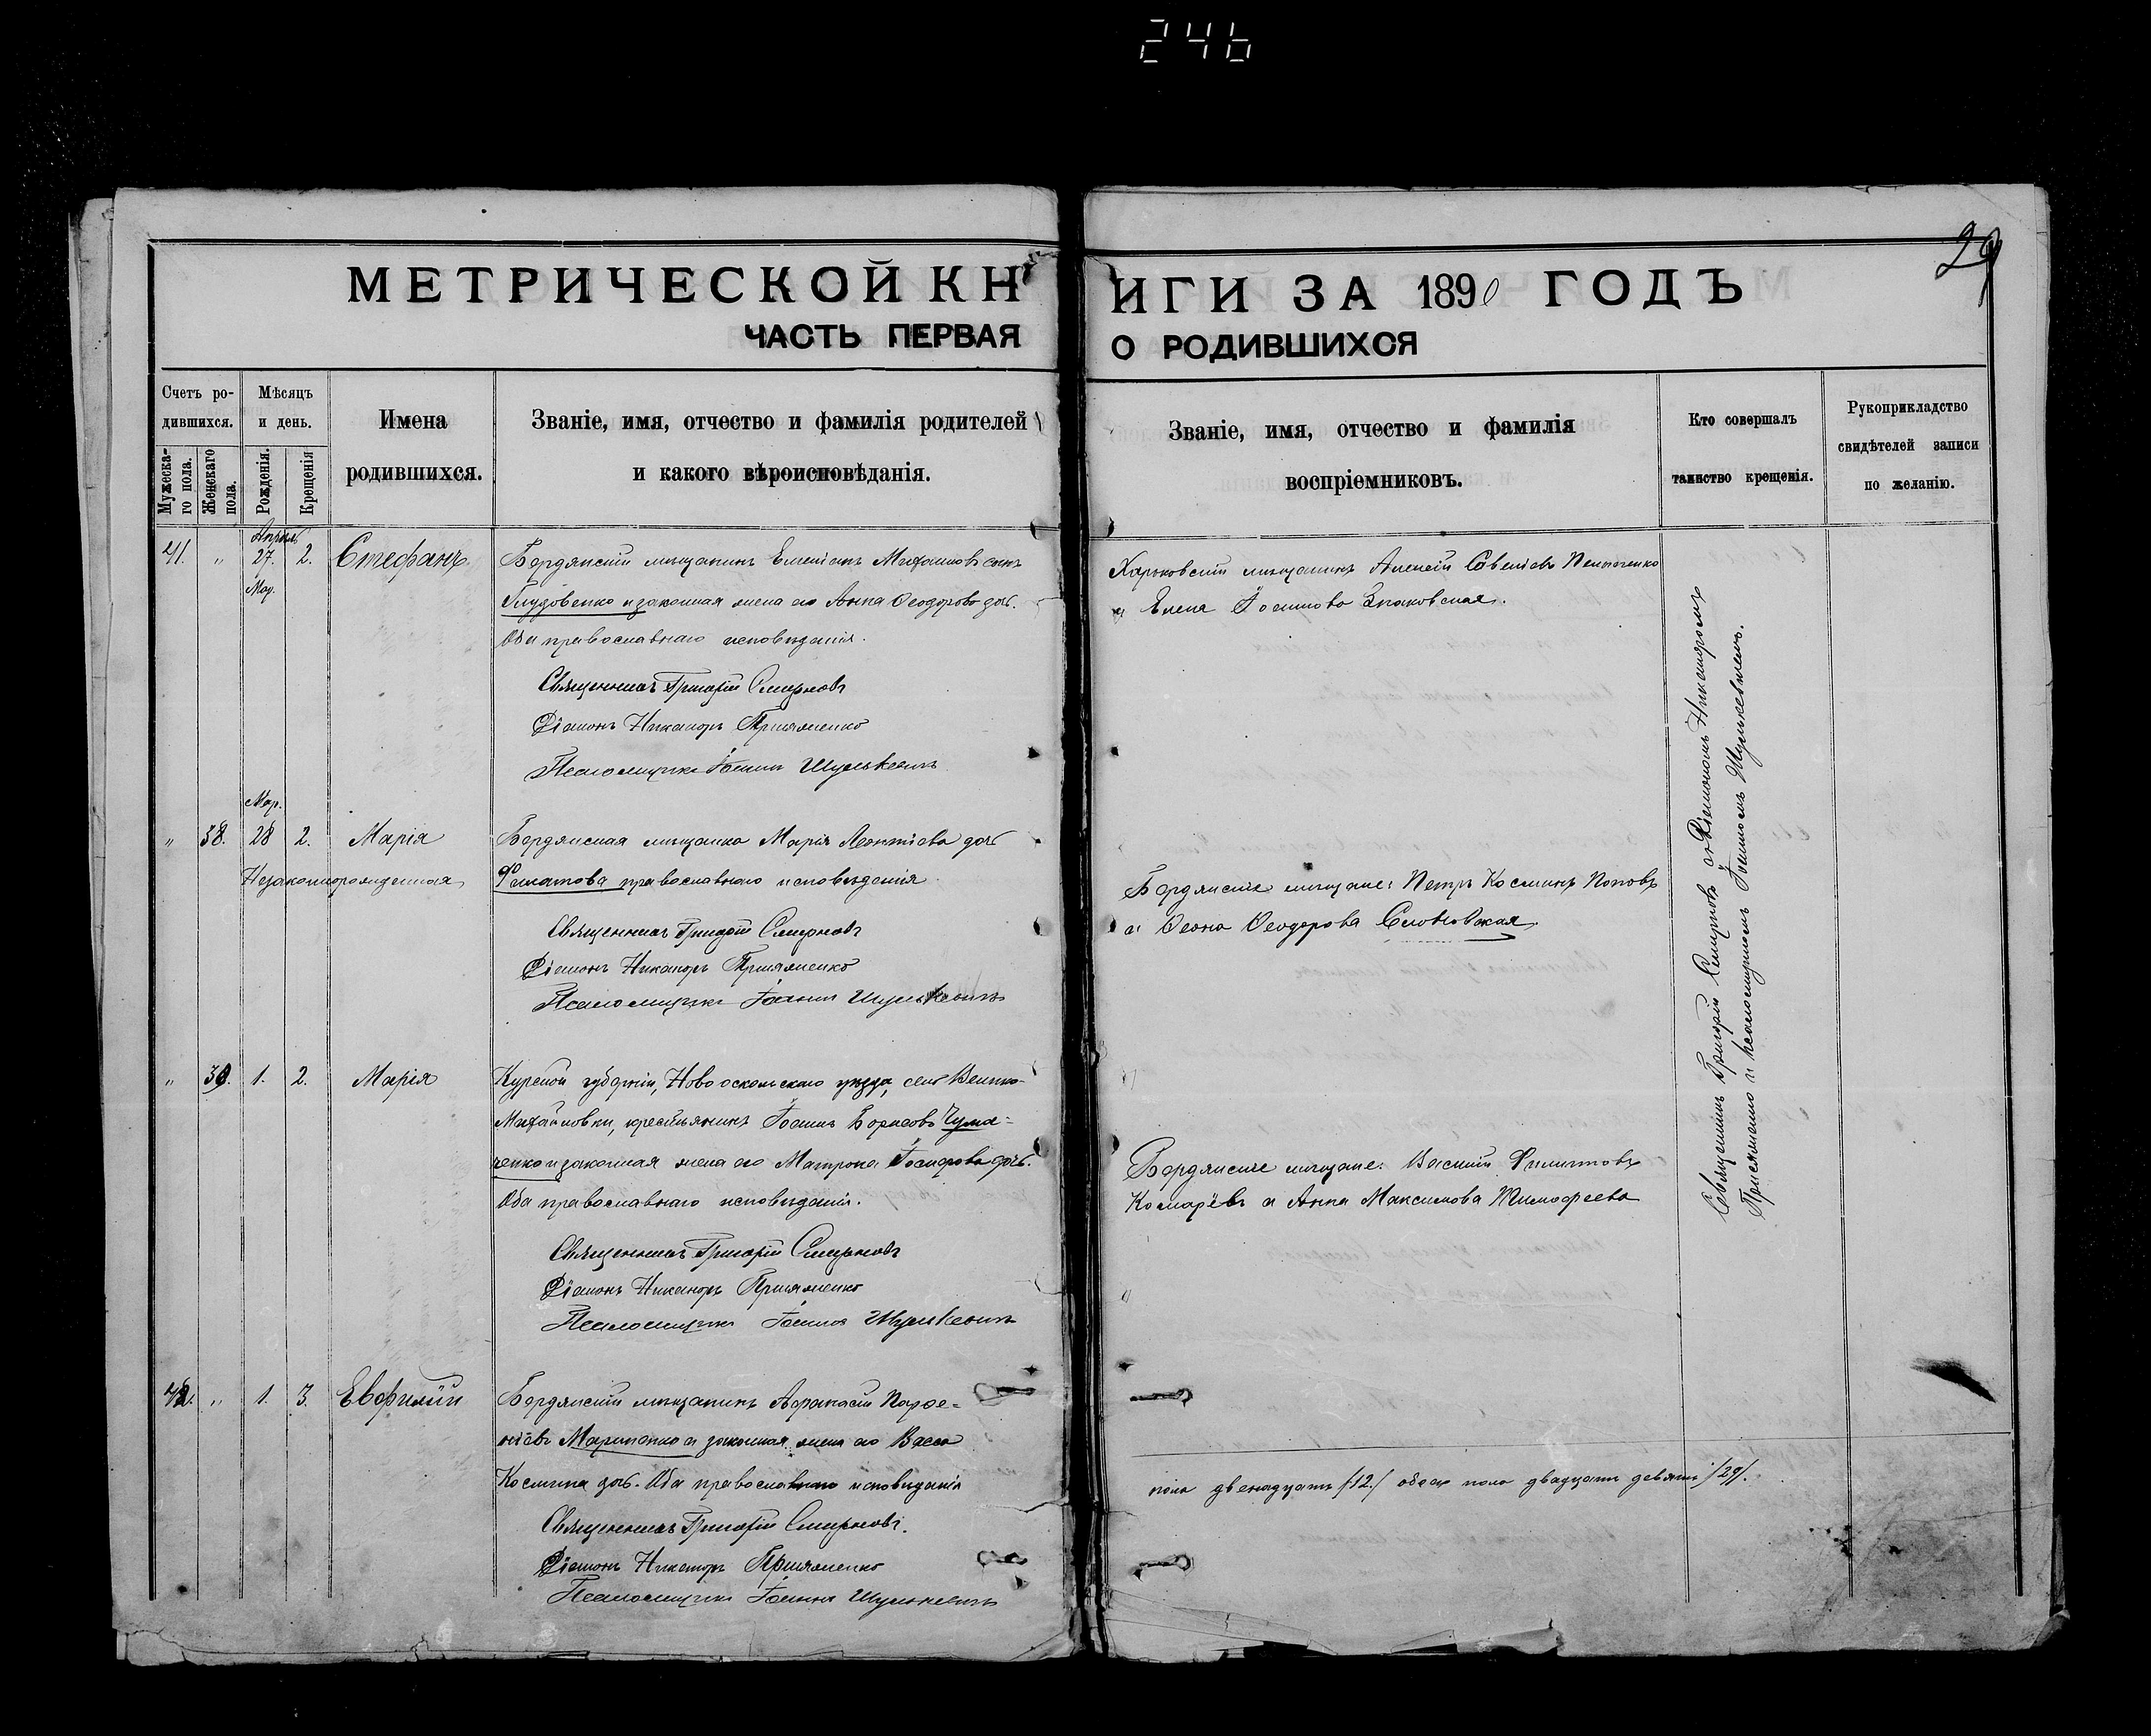 246
29
МЕТРИЧЕСКОЙ КН
ИГИ ЗА 1890 ГОДЪ
ЧАСТЬ ПЕРВАЯ
О РОДИВШИХСЯ
Счетъ ро-
дившихся.
Мужеска-
го пола.
Женскаго
пола.
Мѣсяцъ
и день.
Рожденія.
Крещенія
Имена
родившихся.
Званіе, имя, отчество и фамилія родителей
и какого вѣроисповѣданія.
Званіе, имя, отчество и фамилія
воспріемниковъ.
Кто совершалъ
таинство крещенія.
Рукоприкладство
свидѣтелей записи
по желанію.
Апрѣль
41. " 27. 2. Стефанъ
Май.
Бердянскій мѣщанинъ Емеліанъ Михаиловъ сынъ
Глудовенко и законная жена его Анна Ѳеодорова дочь.
Оба православнаго исповѣданія.
Священникъ Григорій Смирновъ
Діаконъ Никаноръ Присяженко
Псаломщикъ Іоаннъ Шулькевичъ
Харьковскій мѣщанинъ Алексій Савеліевъ
и Елена Знаковская.
Мар.
" 38. 28 2. Марія
Незаконнорожденная
Бердянская мѣщанка Марія Леонтіева дочь
православнаго исповѣданія
Священникъ Григорій Смирновъ
Діаконъ Никаноръ Присяженко
Псаломщикъ Іоаннъ Шулькевичъ
Бердянскіе мѣщане: Петръ Косминъ Поповъ
и Ѳеодорова
" 39. 1. 2. Марія
Курской губерніи, Новооскольскаго уѣзда, села Велико-
Михайловки, крестьянинъ Іоаннъ Борисовъ Чума-
ченко и законная жена его Матрона Іосифова дочь.
Оба православнаго исповѣданія.
Священникъ Григорій Смирновъ
Діаконъ Никаноръ Присяженко
Псаломщикъ Іоаннъ Шулькевичъ
Бердянскіе мѣщане: Василій Филиповъ
Комарёвъ и Анна Максимова Тимофеева
42. " 1. 3. Евфимій
Бердянскій мѣщанинъ Афанасій Парѳе-
ніевъ и законная жена его Васса
Космина дочь. Оба православнаго исповѣданія
Священникъ Григорій Смирновъ.
Діаконъ Никаноръ Присяженко
Псаломщикъ Іоаннъ Шулькевичъ
пола двенадцать /12./ обоего пола двадцать девять /29/.
Священникъ Григорій Смирновъ съ Діакономъ Никаноромъ
Присяженко и псаломщикомъ Іоанномъ Шулькевичемъ.